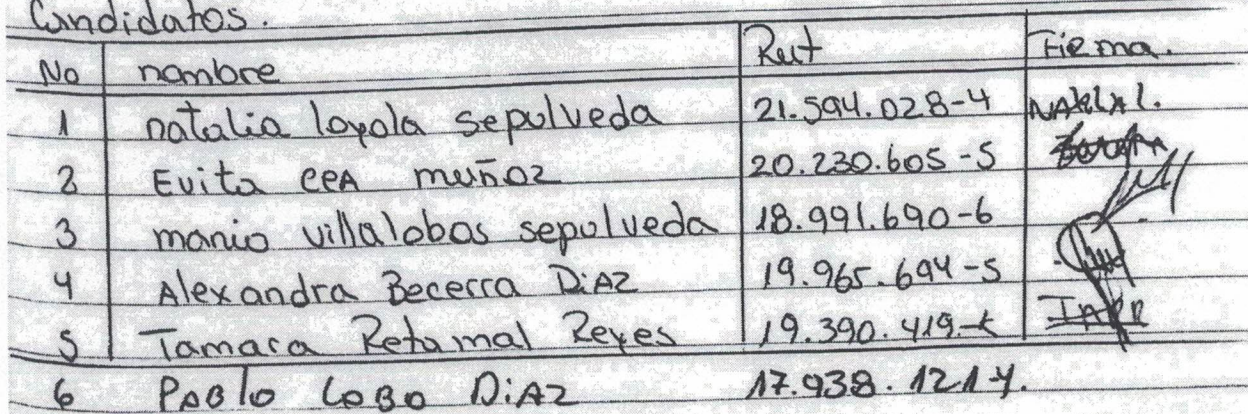 Candidatos.
No nombre Rut Firma.
1 natalia loyola sepulveda 21.594.028-4
2 Evita CEA muñoz 20.230.605-5
3 mario villalobos sepulveda 18.991.690-6
4 Alexandra Becerra DiAZ 19.965.694-5
5 Tamara Retamal Reyes 19.390.419-k
6 PABlo LOBO DiAZ 17.938.121-4.